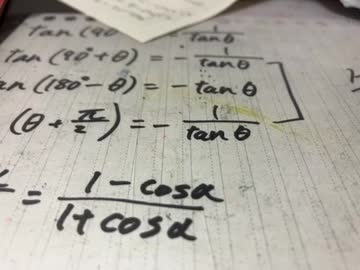 tan (90 = 1/tanθ
tan (90°+θ) = - 1/tanθ
an (180°-θ) = - tanθ
(θ + π/2) = - 1/tanθ
= 1-cosα/1+cosα